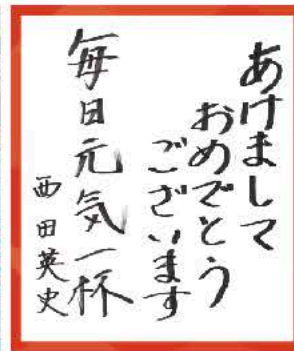 あけまして
おめでとう
ございます
毎日元気一杯
西田英史